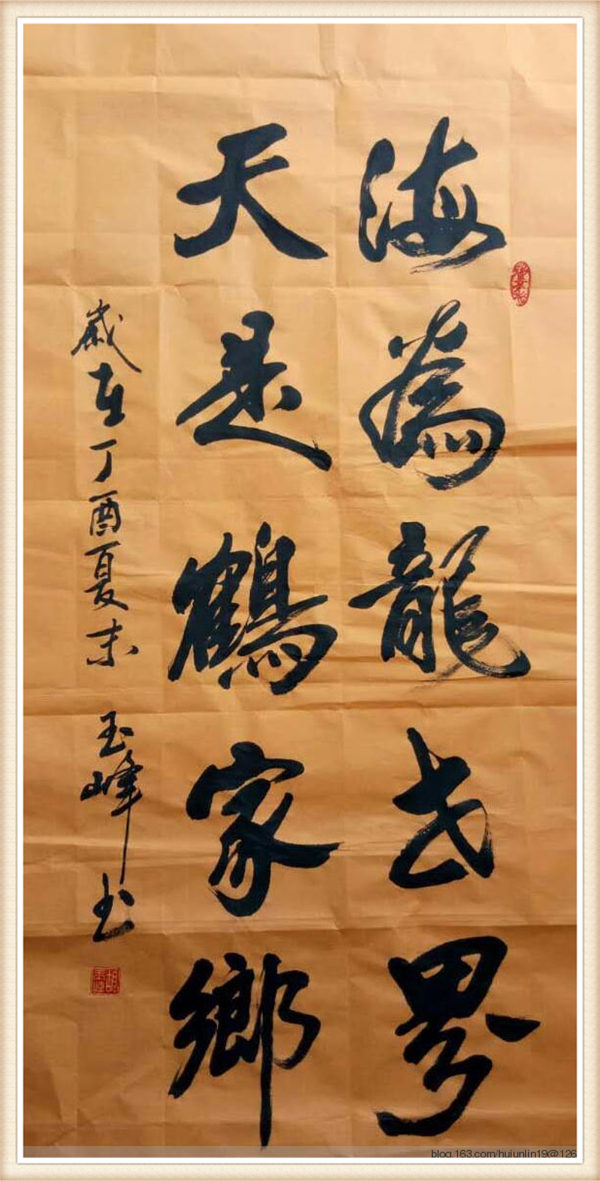 海為龍世界
天是鶴家鄉
歲在丁酉夏末 玉峰书
blog.163.com/huiunlin19@126